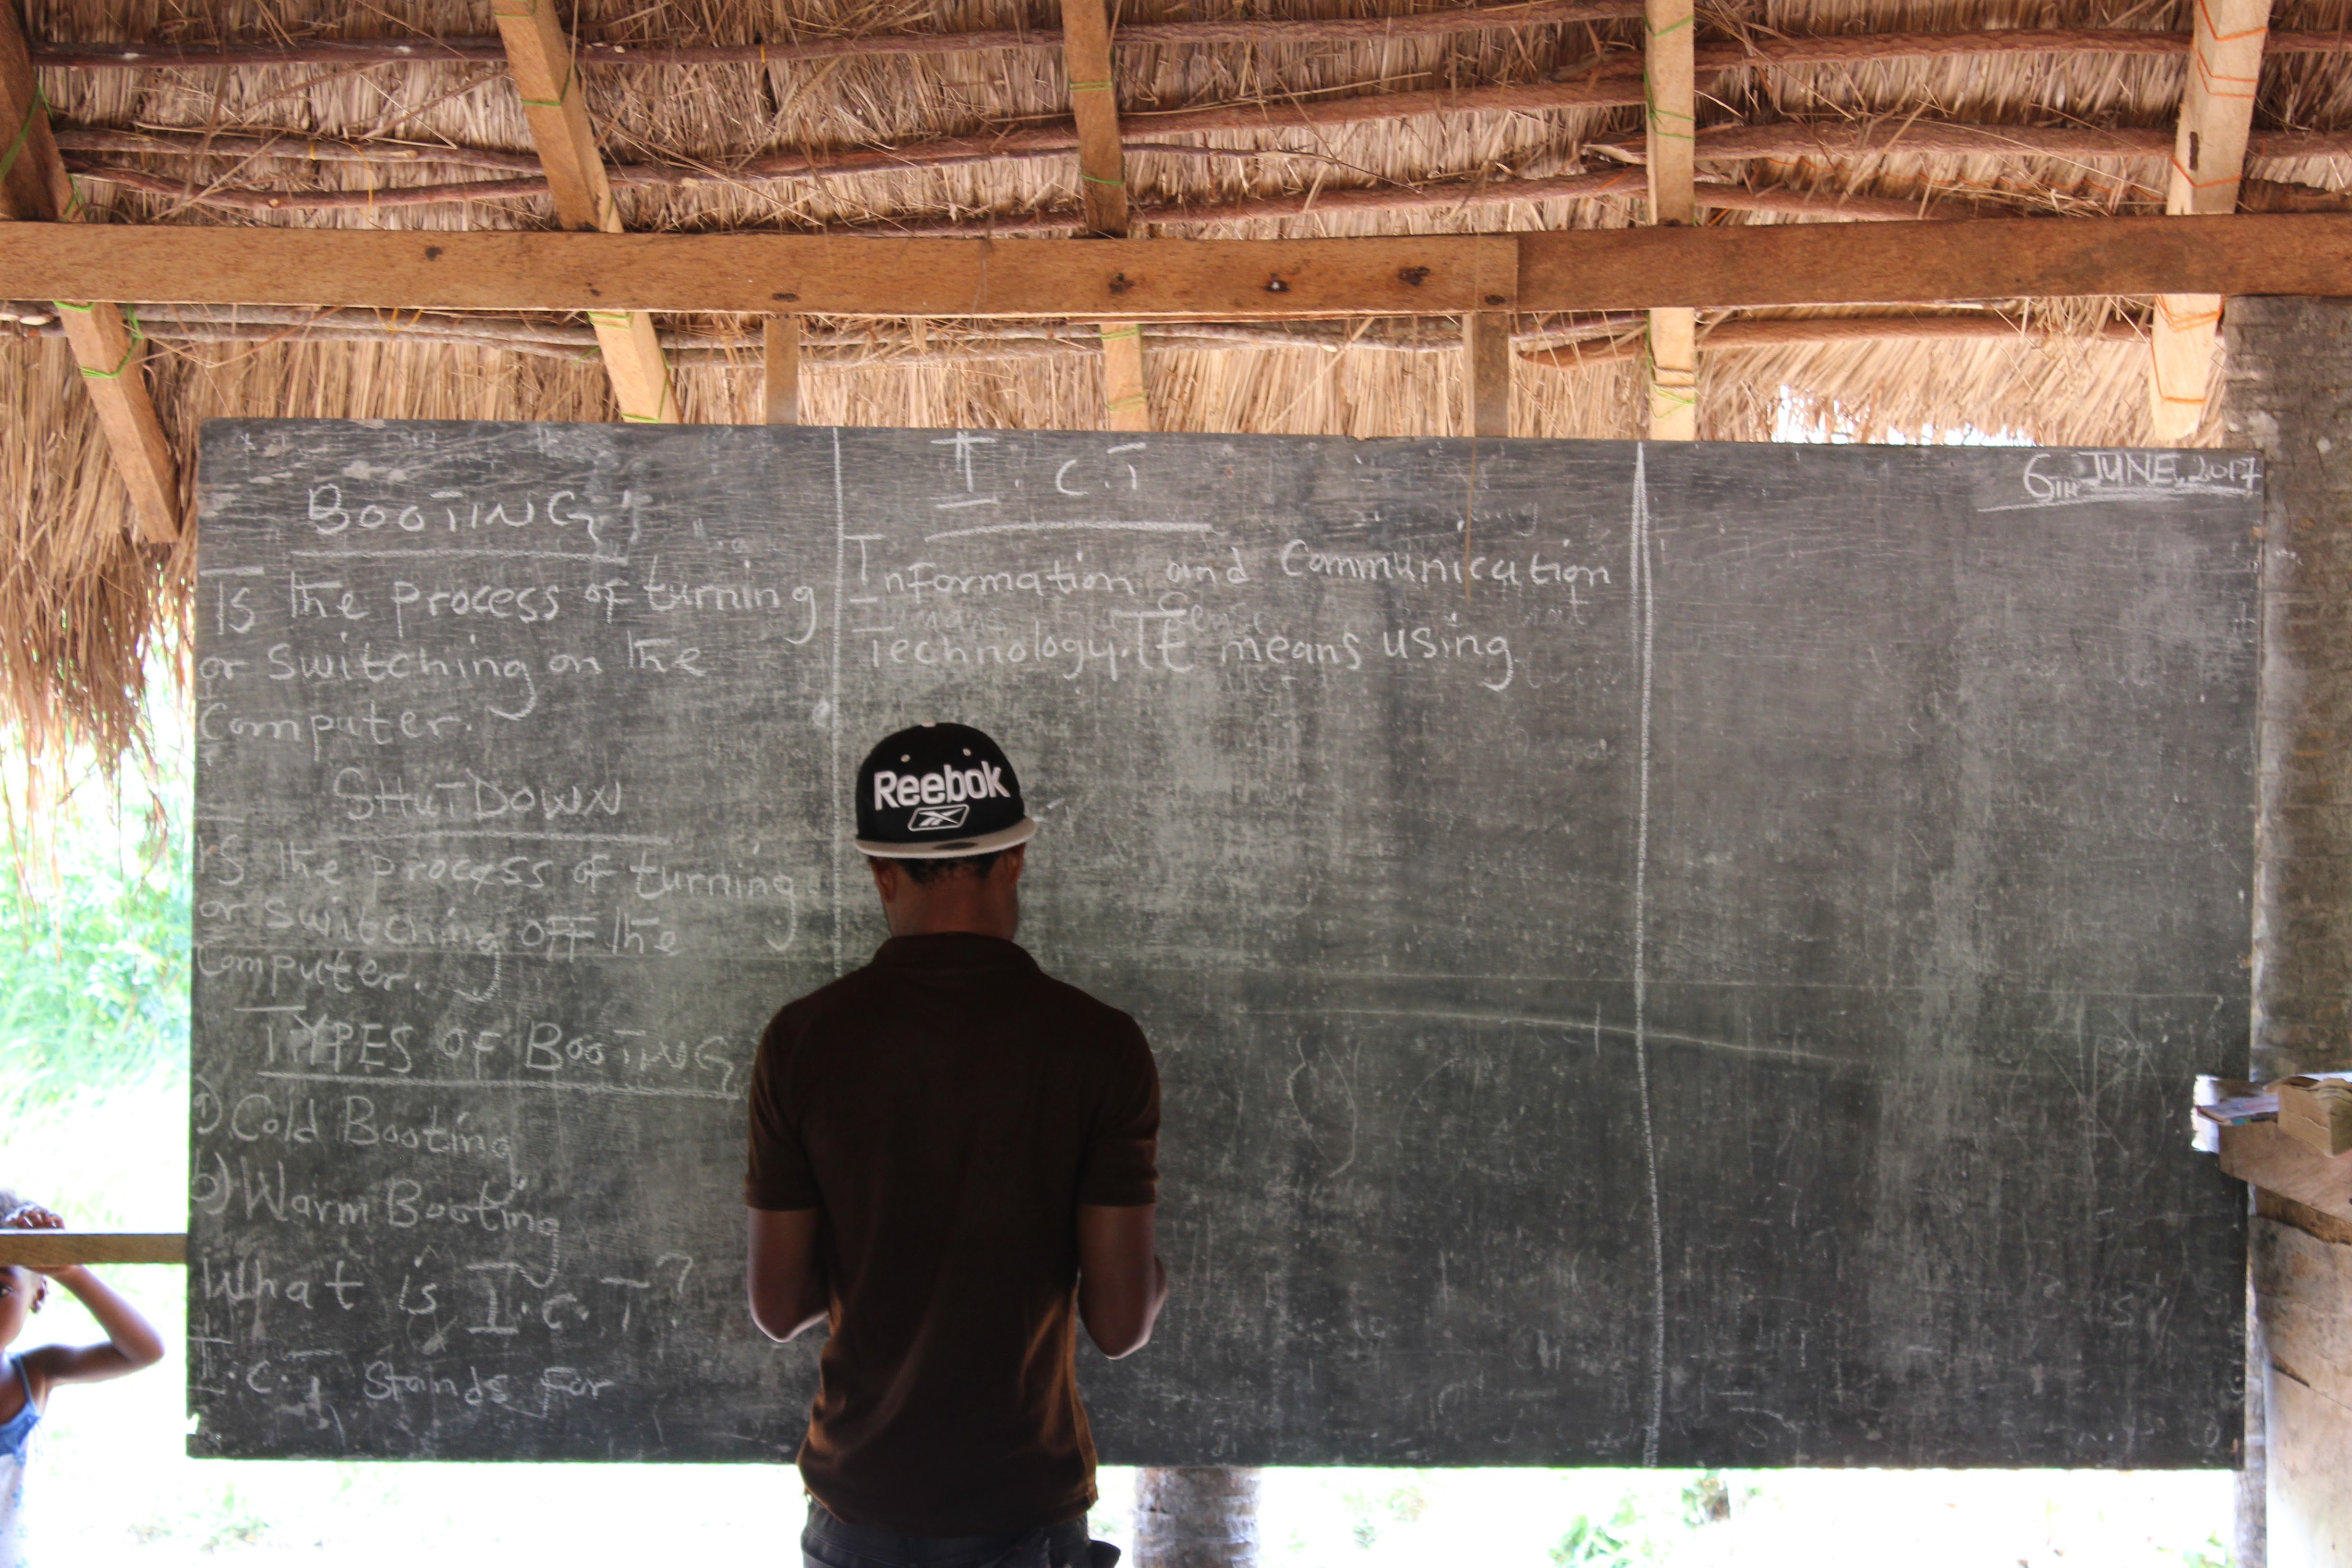 BOOTING
Is the process of turning
or switching on the
Computer.
SHUTDOWN
Is the process of turning
or switching off the
Computer.
TYPES OF BOOTING
a) Cold Booting
b) Warm Booting
What is I.C.T?
I.C.T Stands For
I.C.T
Information and Communication
Technology. It means using
6TH JUNE, 2017
Reebok